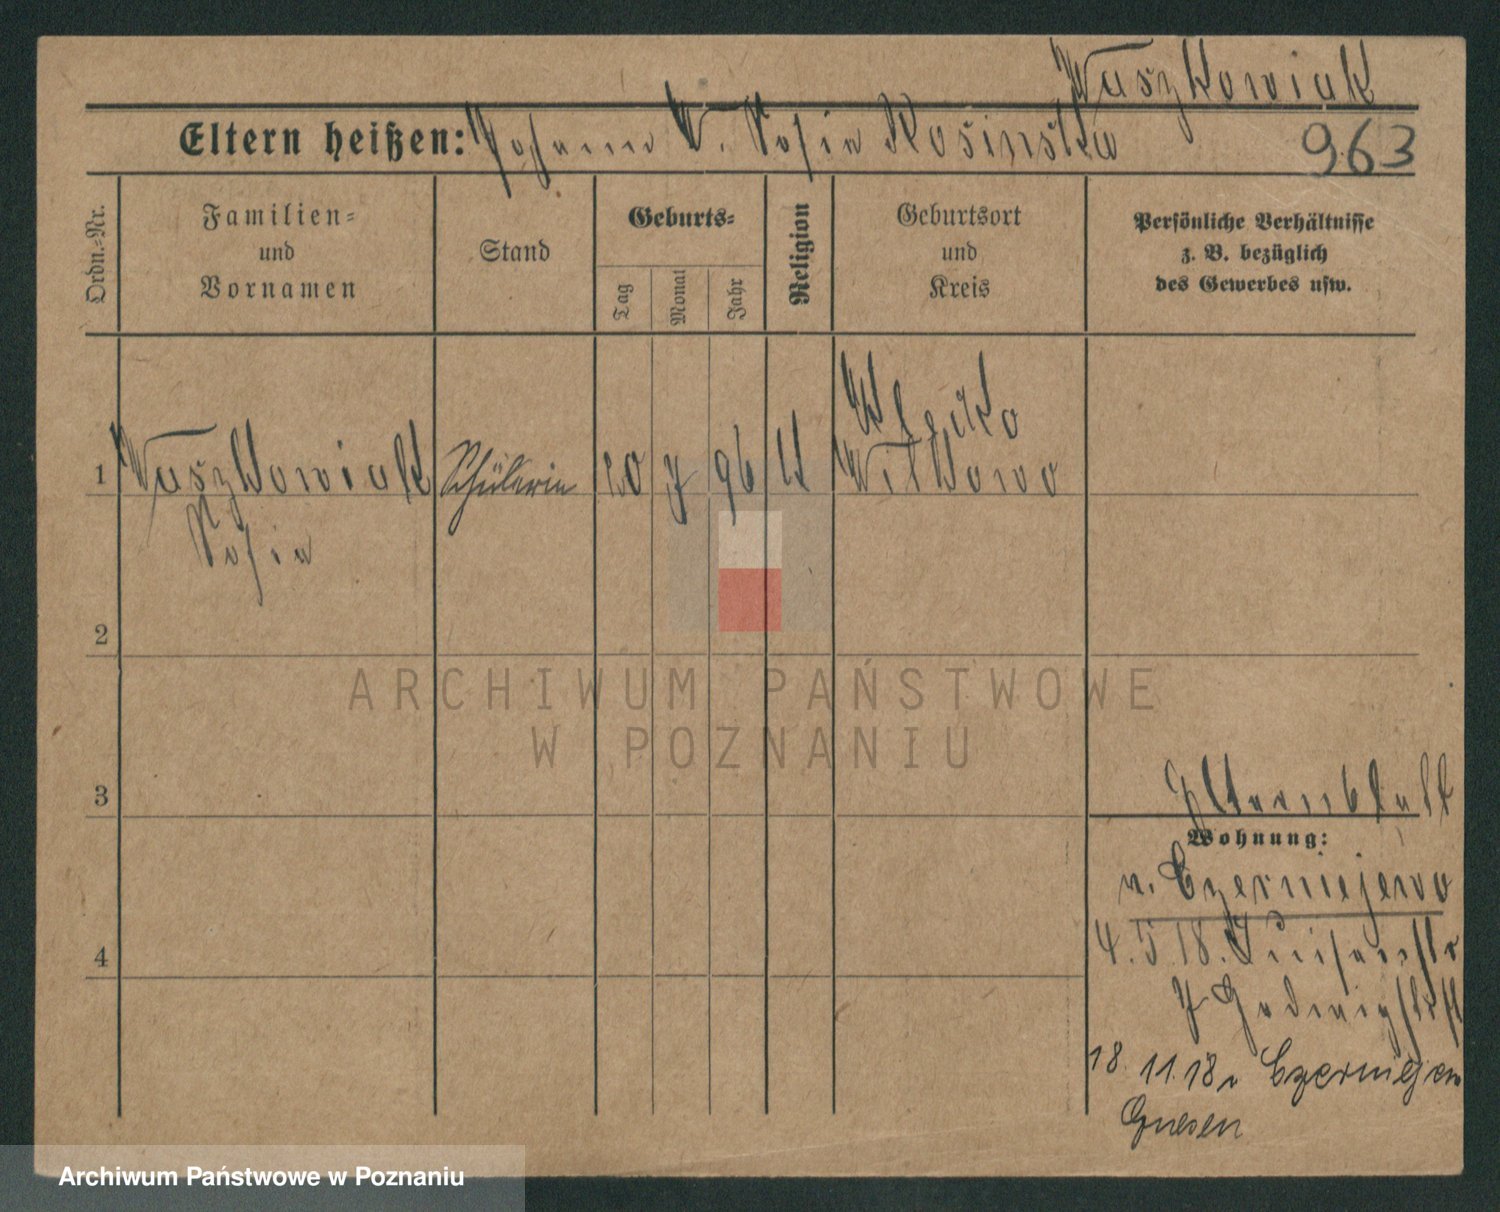 Waszkowiak
Eltern heißen: Johann W. Sofia Kosinska
963
Ordn.=Nr.
Familien=
und
Vornamen
Stand
Geburts=
Tag
Monat
Jahr
Religion
Geburtsort
und
Kreis
Persönliche Verhältnisse
z. B. bezüglich
des Gewerbes usw.
Klecko
1 Waszkowiak Schülerin 20 7 96 Witkowo
Sofia
2
ARCHIWUM PAŃSTWOWE
W POZNANIU
3
Elternblatt
Wohnung:
n. Czerniejewo
4
4.5.18. Luisenstr
7
18.11.18 n Czerniejewo
Gnesen
Archiwum Państwowe w Poznaniu